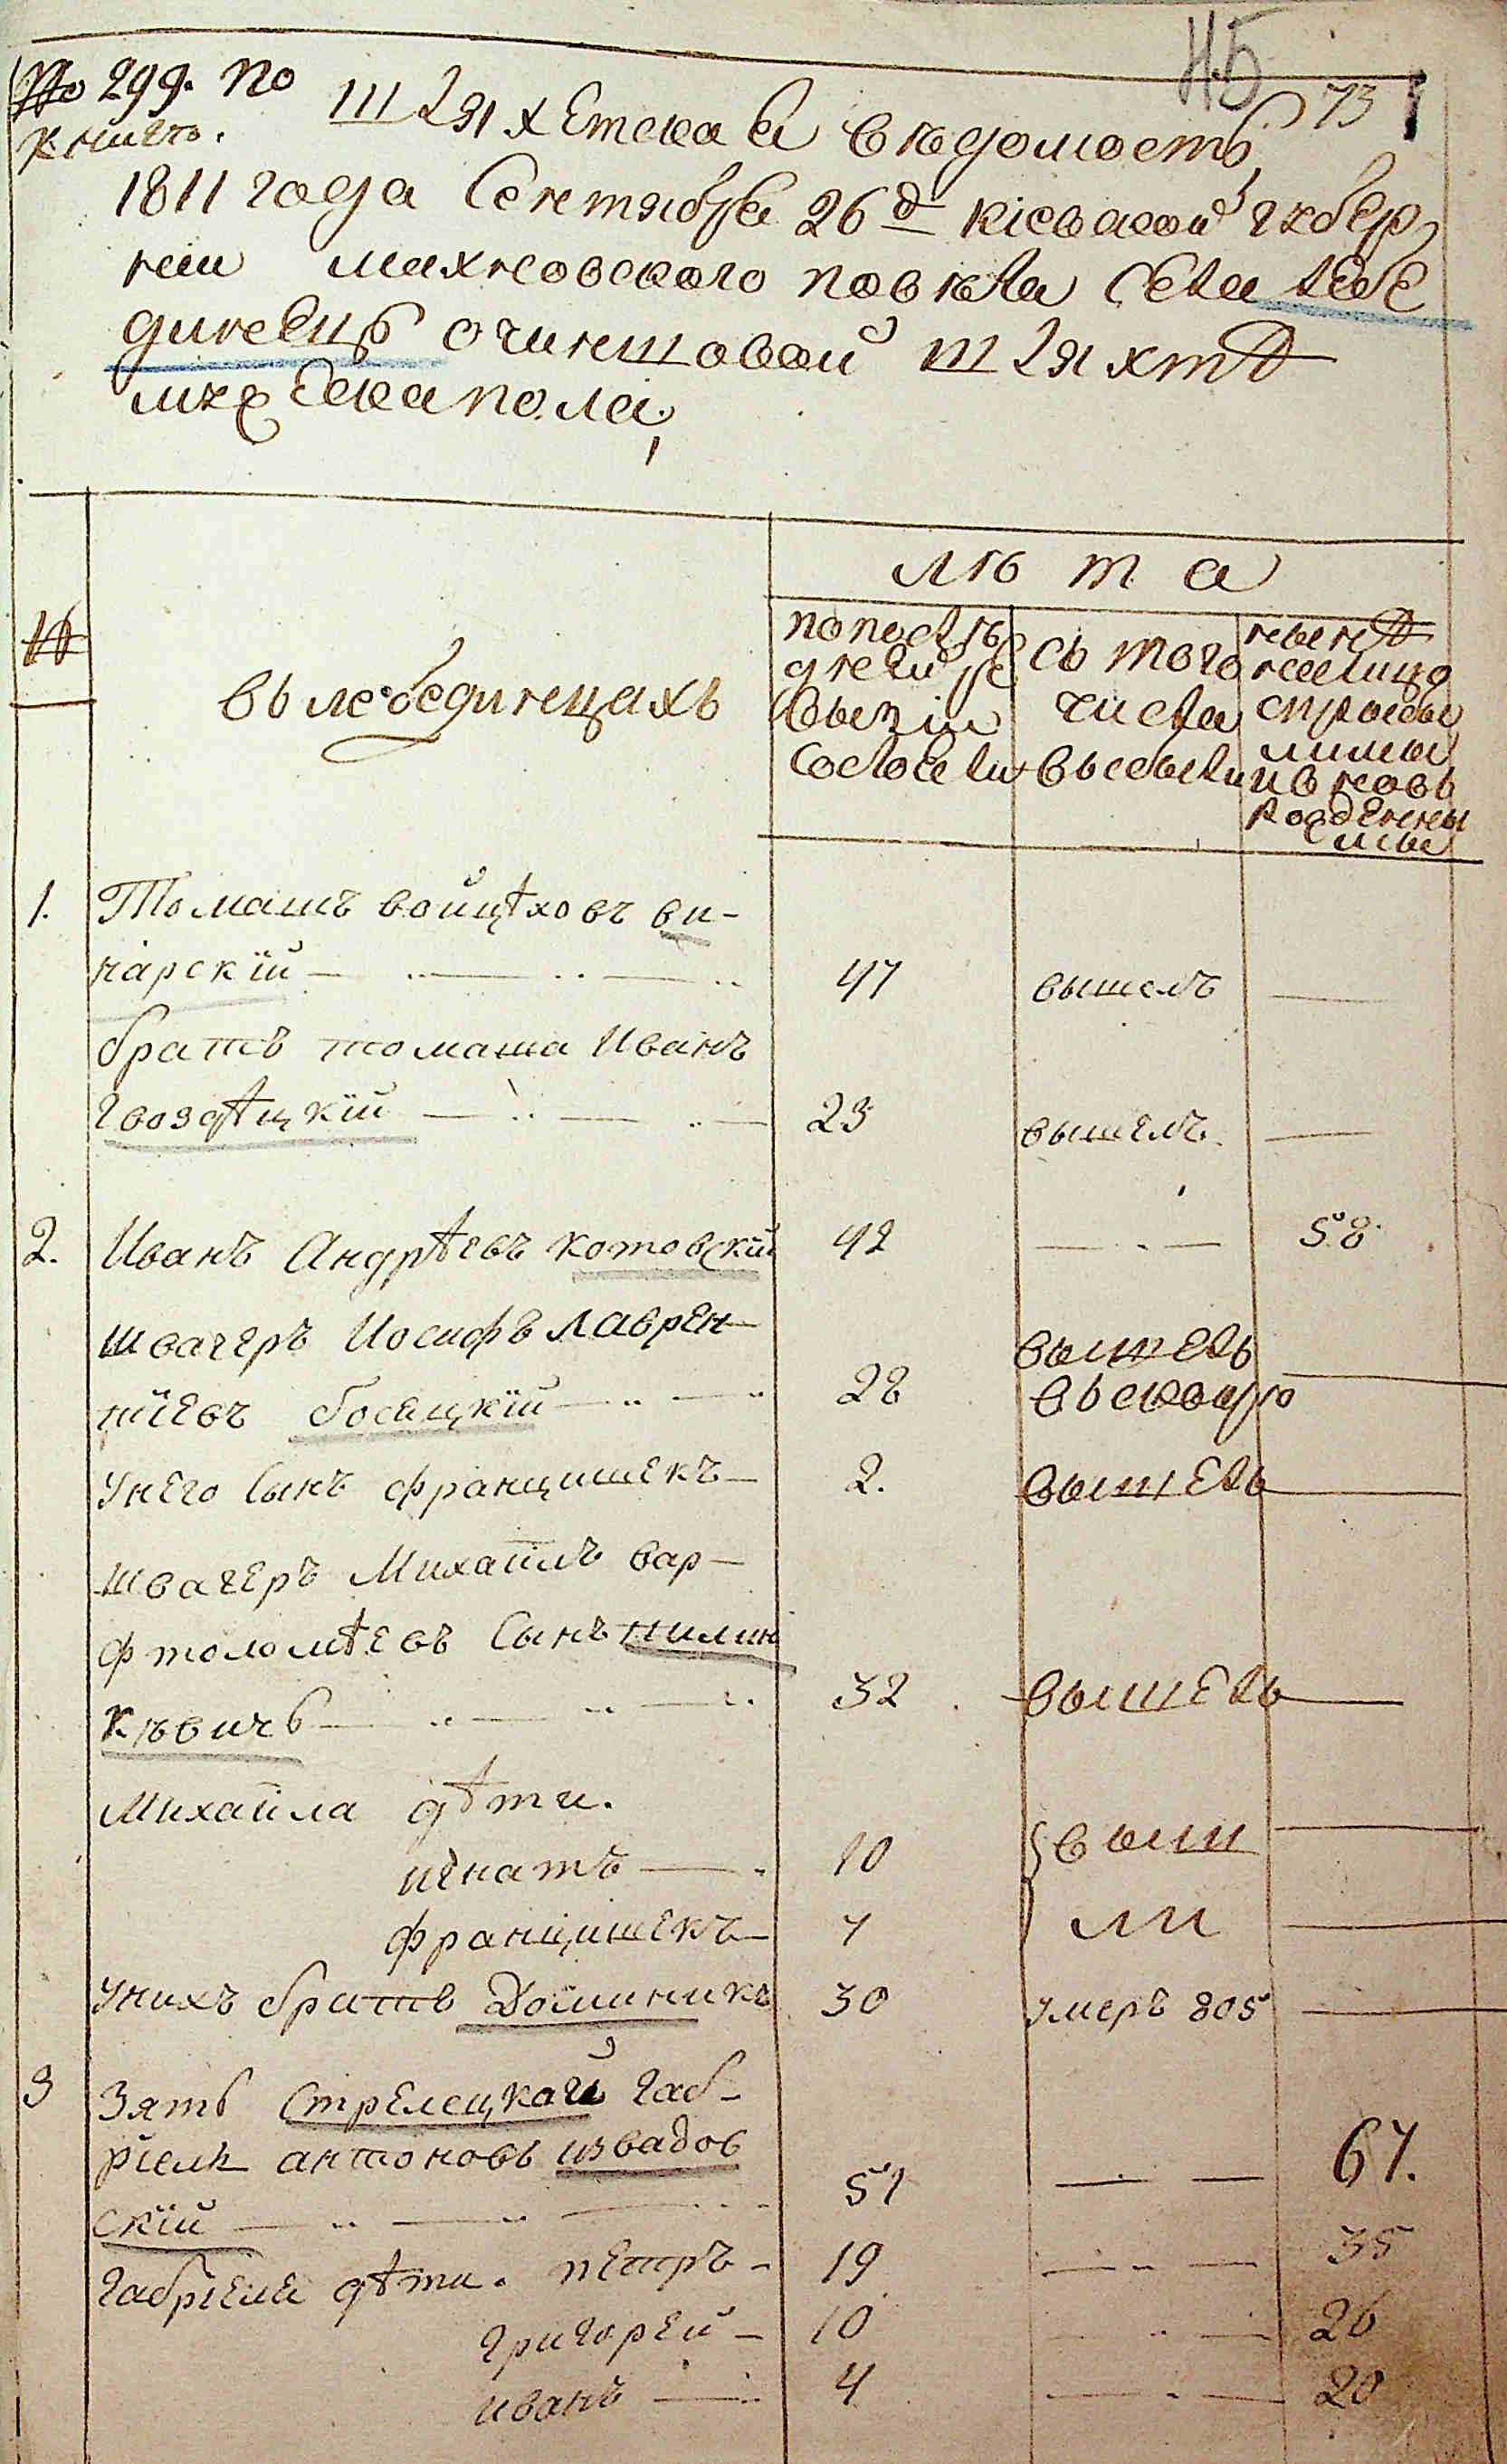 Н.Б
№ 299. по Шляхетская вѣдомость 73
книгѣ.
1811 года Сентября 26 д кіевской губер
ніи махновского повѣта села лебе
динецъ очиншовой шляхтѣ
муж„ ска пола„
№
въ лебединецахъ
лѣта
по послѣ
дней ре
вызіи
состояли
съ того
числа
высбыли
ныне
налицо
списы
мимы
и вновь
рожденны
мы
1. Томашъ войцѣховъ ви-
нарскій 47 вышелъ
братъ томаша Иванъ
гвоздѣцкій 23 вышелъ.
2. Иванъ Андрѣевъ котовскій 42 58
швагеръ Иосифъ лаврен-
тіевъ босацкій 28 вышелъ
въсквиру
унего Сынъ францишекъ 2. вышелъ
швагеръ Михаилъ вар-
фтоломѣевъ Сынъ пилин
кѣвичъ 32 вышелъ
Михаила дѣти.
игнатъ 10 выш
францишекъ 7 ли
унихъ братъ Доминикъ 30 умеръ 805
3 Зять Стрелецкаго Габ-
ріель антоновъ извадов
скій 51 67.
Габріеля дѣти. петръ 19 35
григорей 10 26
иванъ 4 20